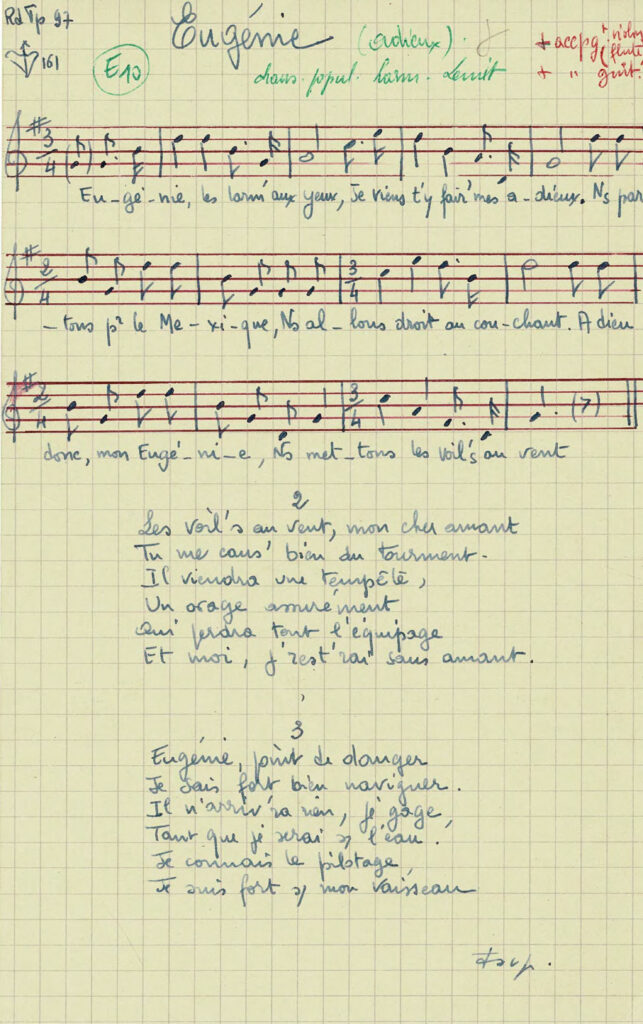 Rd Tp 97
161
E10
Eugénie (adieux).
chans. popul. harm.
+ accpgt violon
flute
+ " guit.
3/4
Eu-gé-nie, les larm' aux yeux, Je viens t'y fair' mes a-dieux. Ns par
2/4 3/4
-tons pr le Me-xi-que, Ns al-lons droit au cou-chant. A dieu
2/4 3/4
donc, mon Eugé-ni-e, Ns met-tons les voil's au vent
2
Les voil's au vent, mon cher amant
Tu me caus' bien du tourment.
Il viendra une tempête,
Un orage assurément
Qui perdra tout l'équipage
Et moi, j'rest'rai sans amant.
3
Eugénie, point de danger
Je sais fort bien naviguer.
Il n'arriv'ra rien, je gage,
Tant que je serai s/ l'eau.
Je connais le pilotage,
Je suis fort s/ mon vaisseau